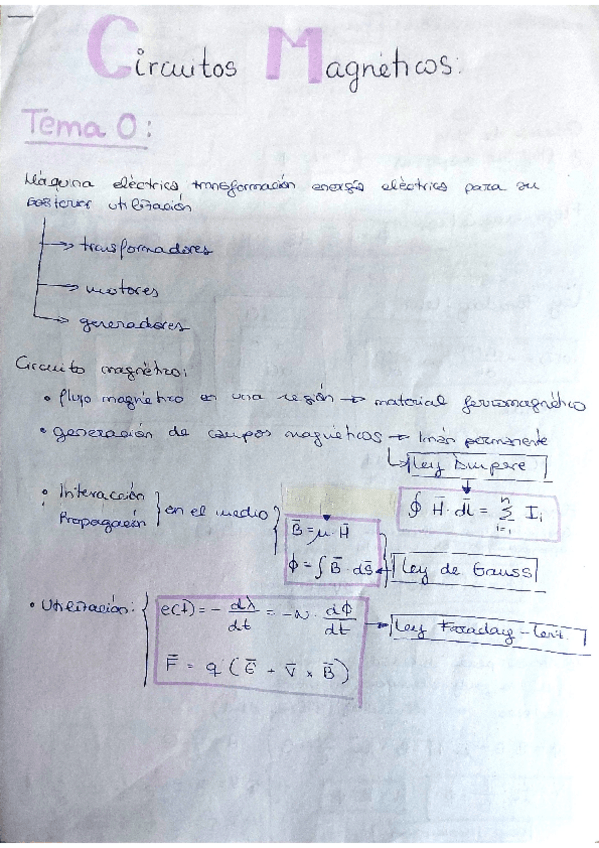 Circuitos Magnéticos:
Tema 0:
Máquina eléctrica, transformación energía eléctrica para su
posterior utilización
→ transformadores
→ motores
→ generadores
Circuito magnético:
• flujo magnético en una región → material ferromagnético
• generación de campos magnéticos → Imán permanente
↳ Ley Ampere
∮ H̄ · dl̄ = Σ(i=1..n) Iᵢ
• Interacción
Propagación } en el medio {
B̄ = μ · H̄
ϕ = ∫ B̄ · ds̄ ← Ley de Gauss
• Utilización: { e(t) = - dλ/dt = -N · dϕ/dt → Ley Faraday-Lenz.
F̄ = q (Ē + V̄ × B̄)